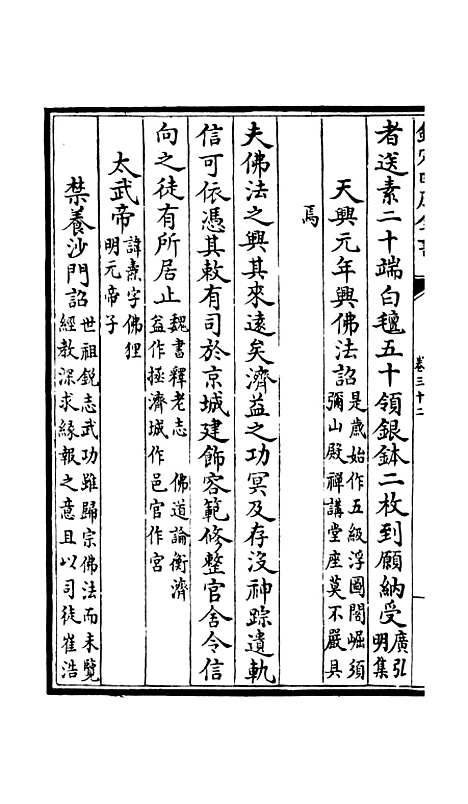 欽定四庫全書
卷三十二
者送素二十端白氊五十領銀鉢二枚到願納受廣弘
明集
天興元年興佛法詔是歲始作五級浮圖闍崛須
彌山殿禪講堂座莫不嚴具
焉
夫佛法之興其來遠矣濟益之功冥及存沒神踪遺軌
信可依憑其敕有司於京城建飾容範修整官舍令信
向之徒有所居止魏書釋老志 佛道論衡濟
益作拯濟城作邑官作宮
太武帝諱燾字佛狸
明元帝子
禁養沙門詔世祖銳志武功雖歸宗佛法而未覽
經教深求緣報之意且以司徒崔浩